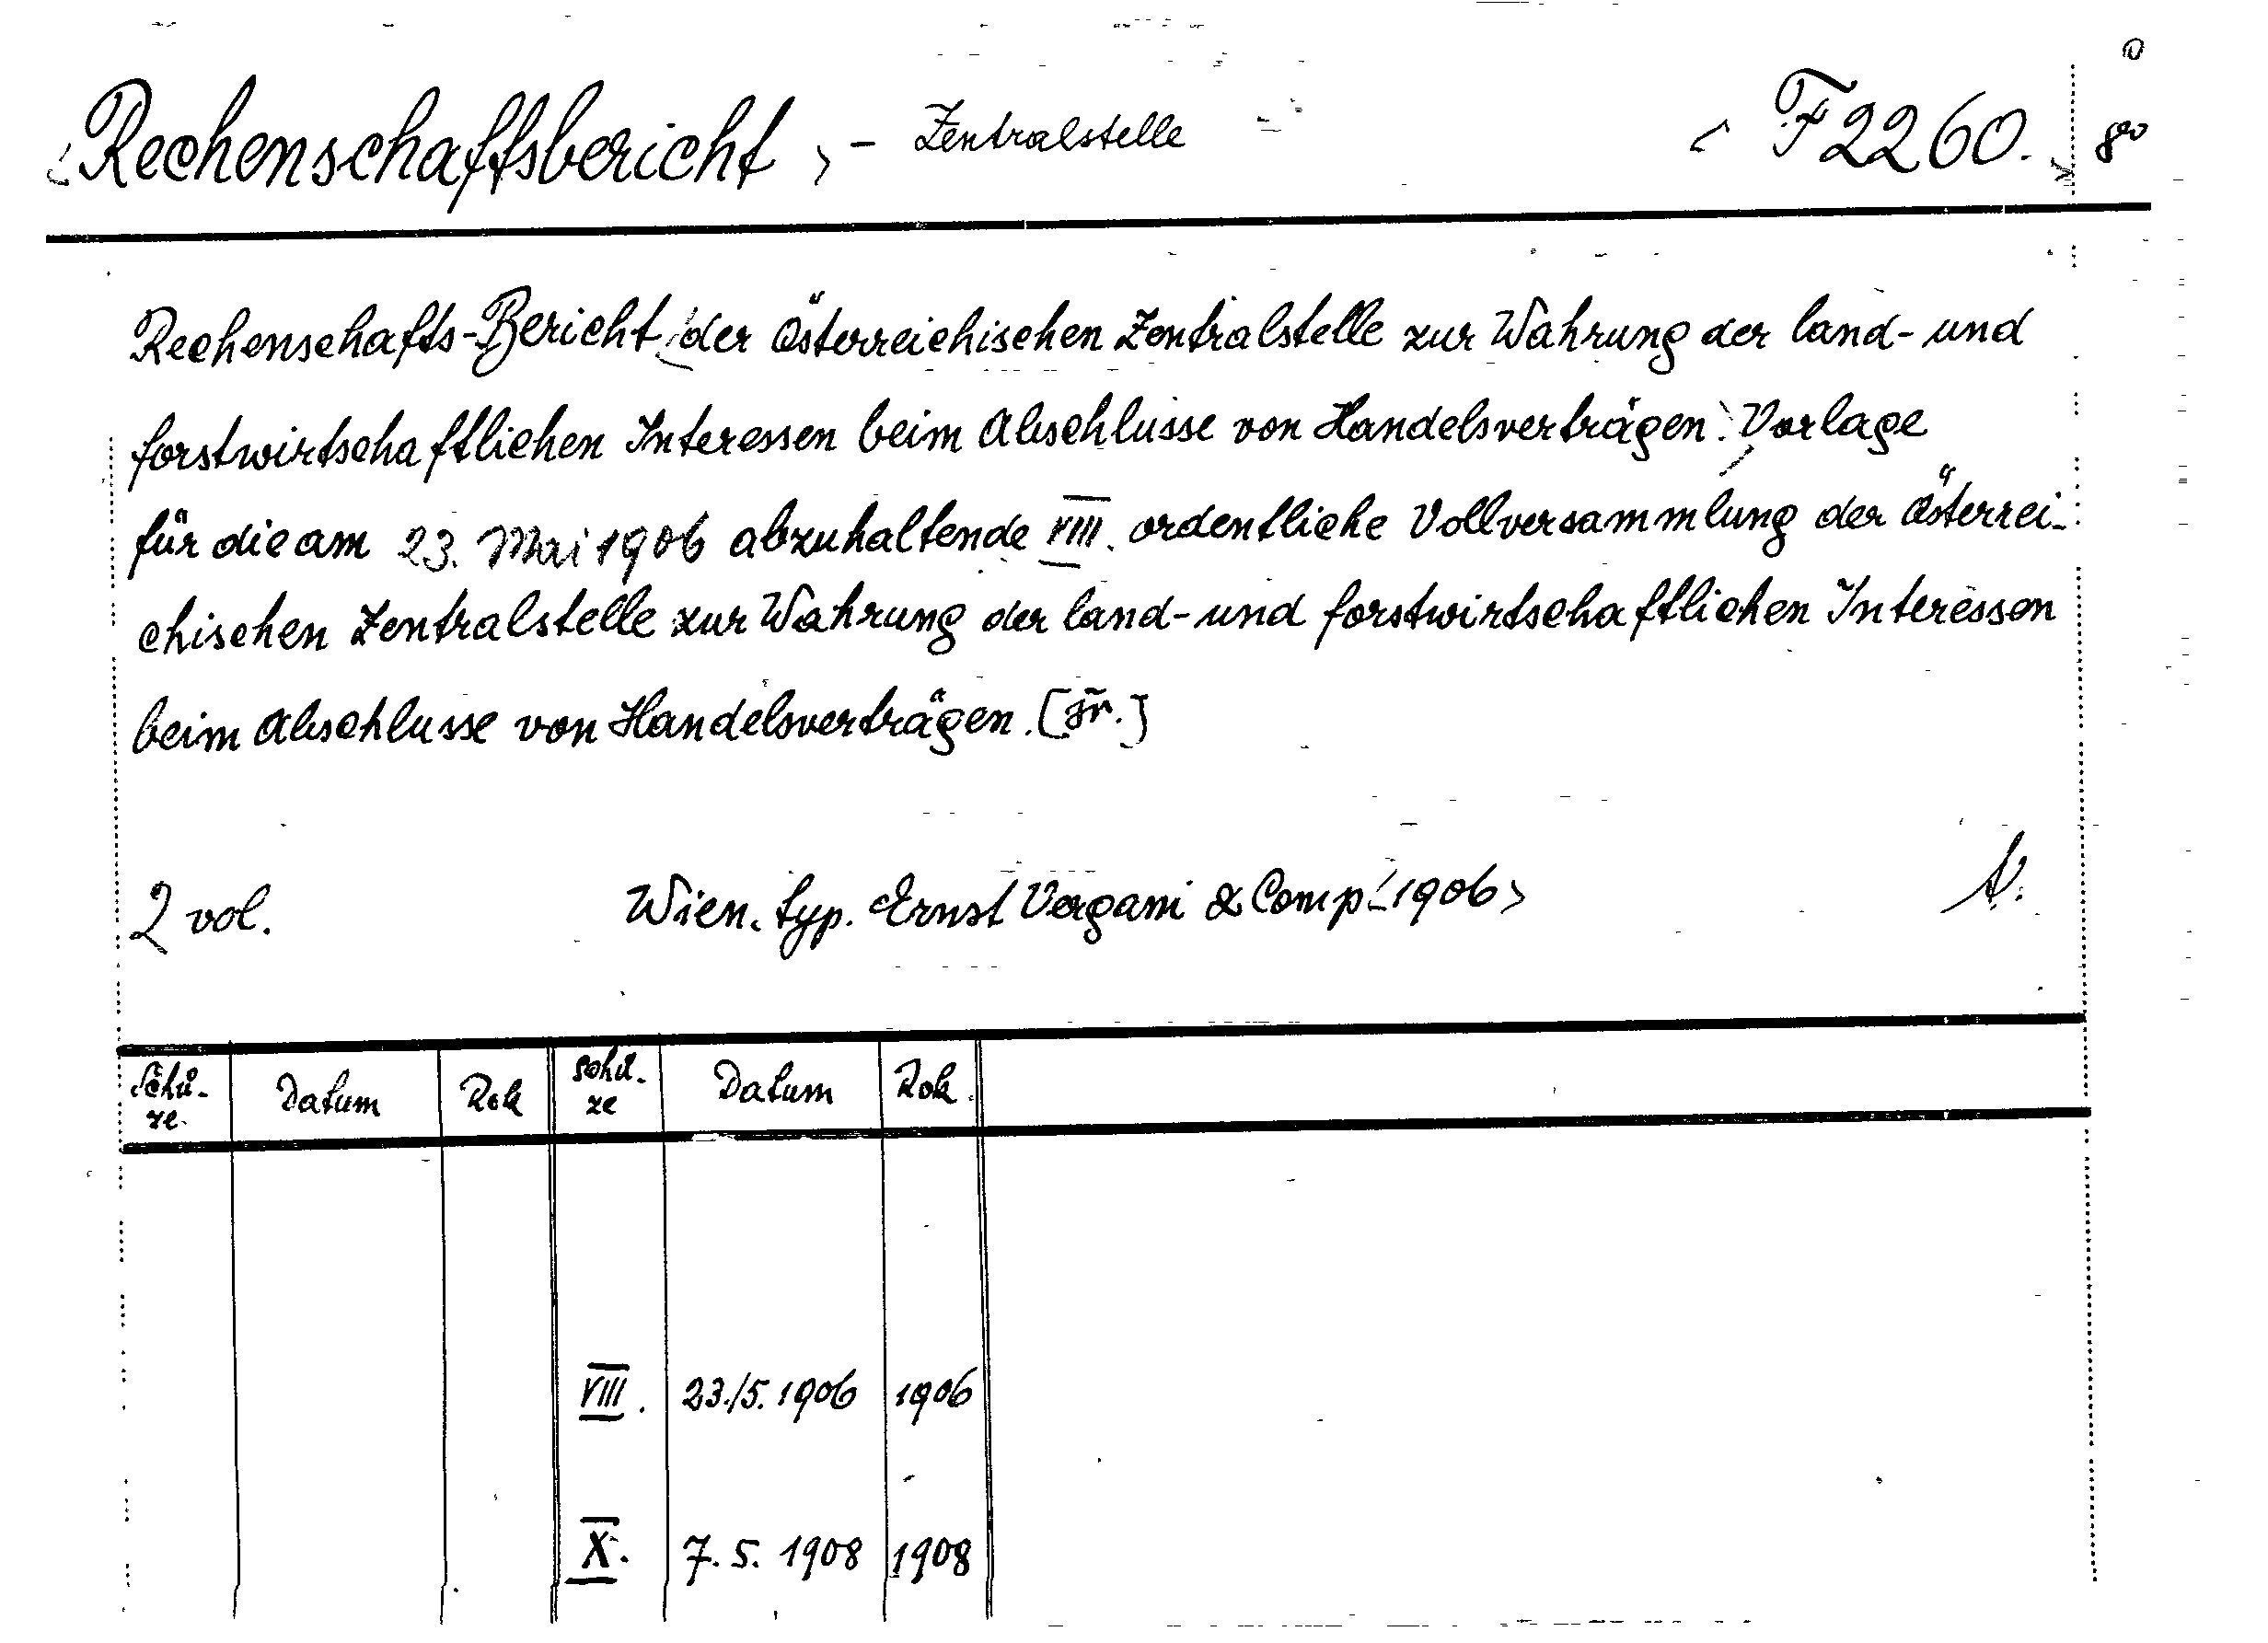 Rechenschaftsbericht - Zentralstelle F 2260. 8⁰
Rechenschafts-Bericht der Österreichischen Zentralstelle zur Wahrung der land- und
forstwirtschaftlichen Interessen beim Abschlusse von Handelsverträgen. Vorlage
für die am 23. Mai 1906 abzuhaltende VIII. ordentliche Vollversammlung der Österrei-
chischen Zentralstelle zur Wahrung der land- und forstwirtschaftlichen Interessen
beim Abschlusse von Handelsverträgen.
2 vol. Wien. typ. Ernst Vergani & Comp. 1906
Schů- Datum Rok schů- Datum Rok
ze. ze
VIII. 23./5. 1906 1906
X. 7. 5. 1908 1908